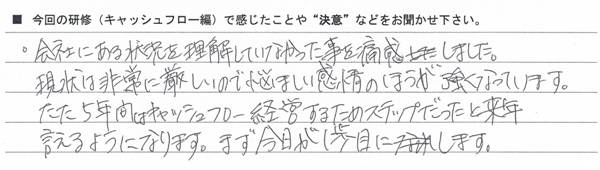 ■ 今回の研修（キャッシュフロー編）で感じたことや“決意”などをお聞かせ下さい。
。会社にある状況を理解していなかった事を痛感しました。
現状は非常に厳しいので悩ましい感情のほうが強くなっています。
ただ5年間はキャッシュフロー経営するためステップだったと来年
言えるようになります。まず今日が1歩目にします。